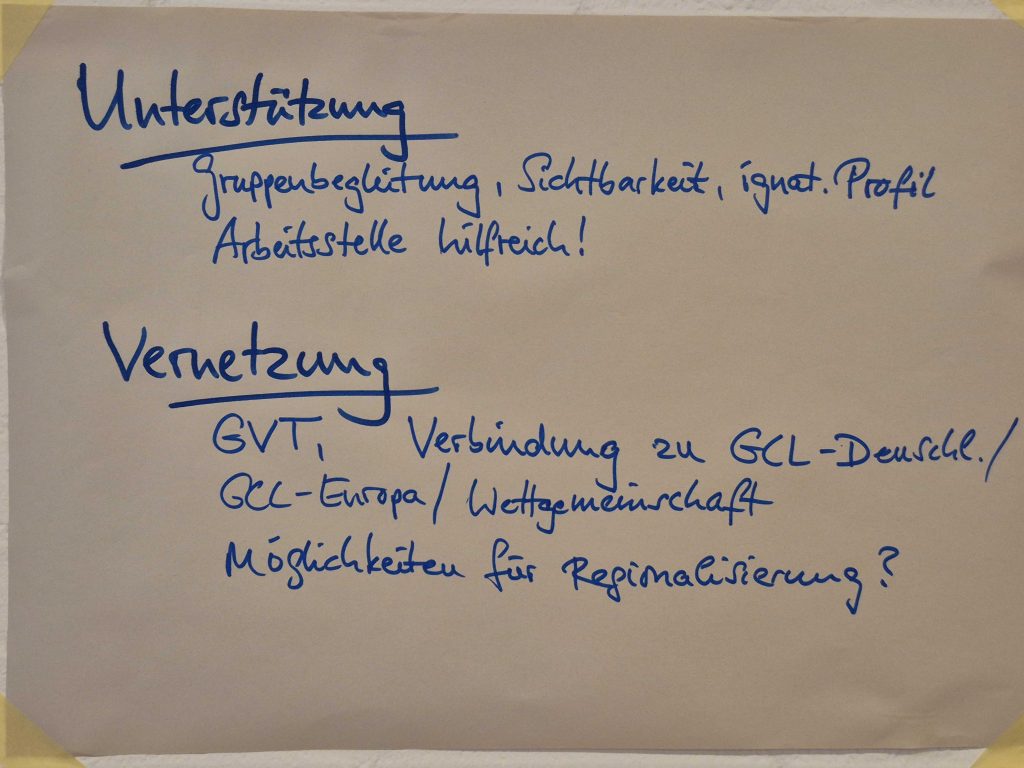 Unterstützung
Gruppenbegleitung, Sichtbarkeit, ignat. Profil
Arbeitsstelle hilfreich!
Vernetzung
GVT, Verbindung zu GCL-Deuschl./
GCL-Europa/Weltgemeinschaft
Möglichkeiten für Regionalisierung?